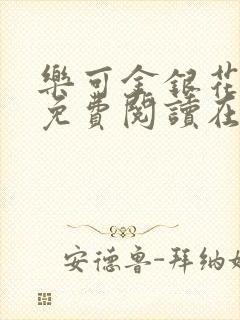 樂可金銀花
免費閱讀在
安德魯-拜納姆